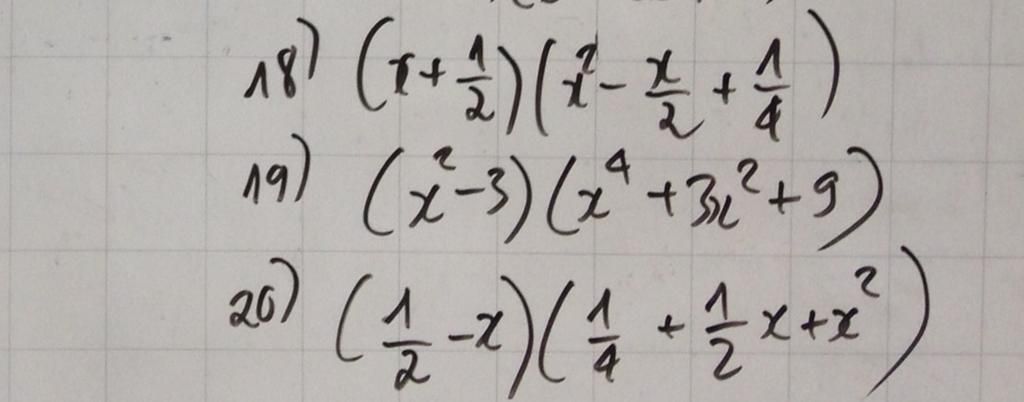 18) (x + 1/2)(x² - x/2 + 1/4)
19) (x² - 3)(x⁴ + 3x² + 9)
20) (1/2 - x)(1/4 + 1/2 x + x²)